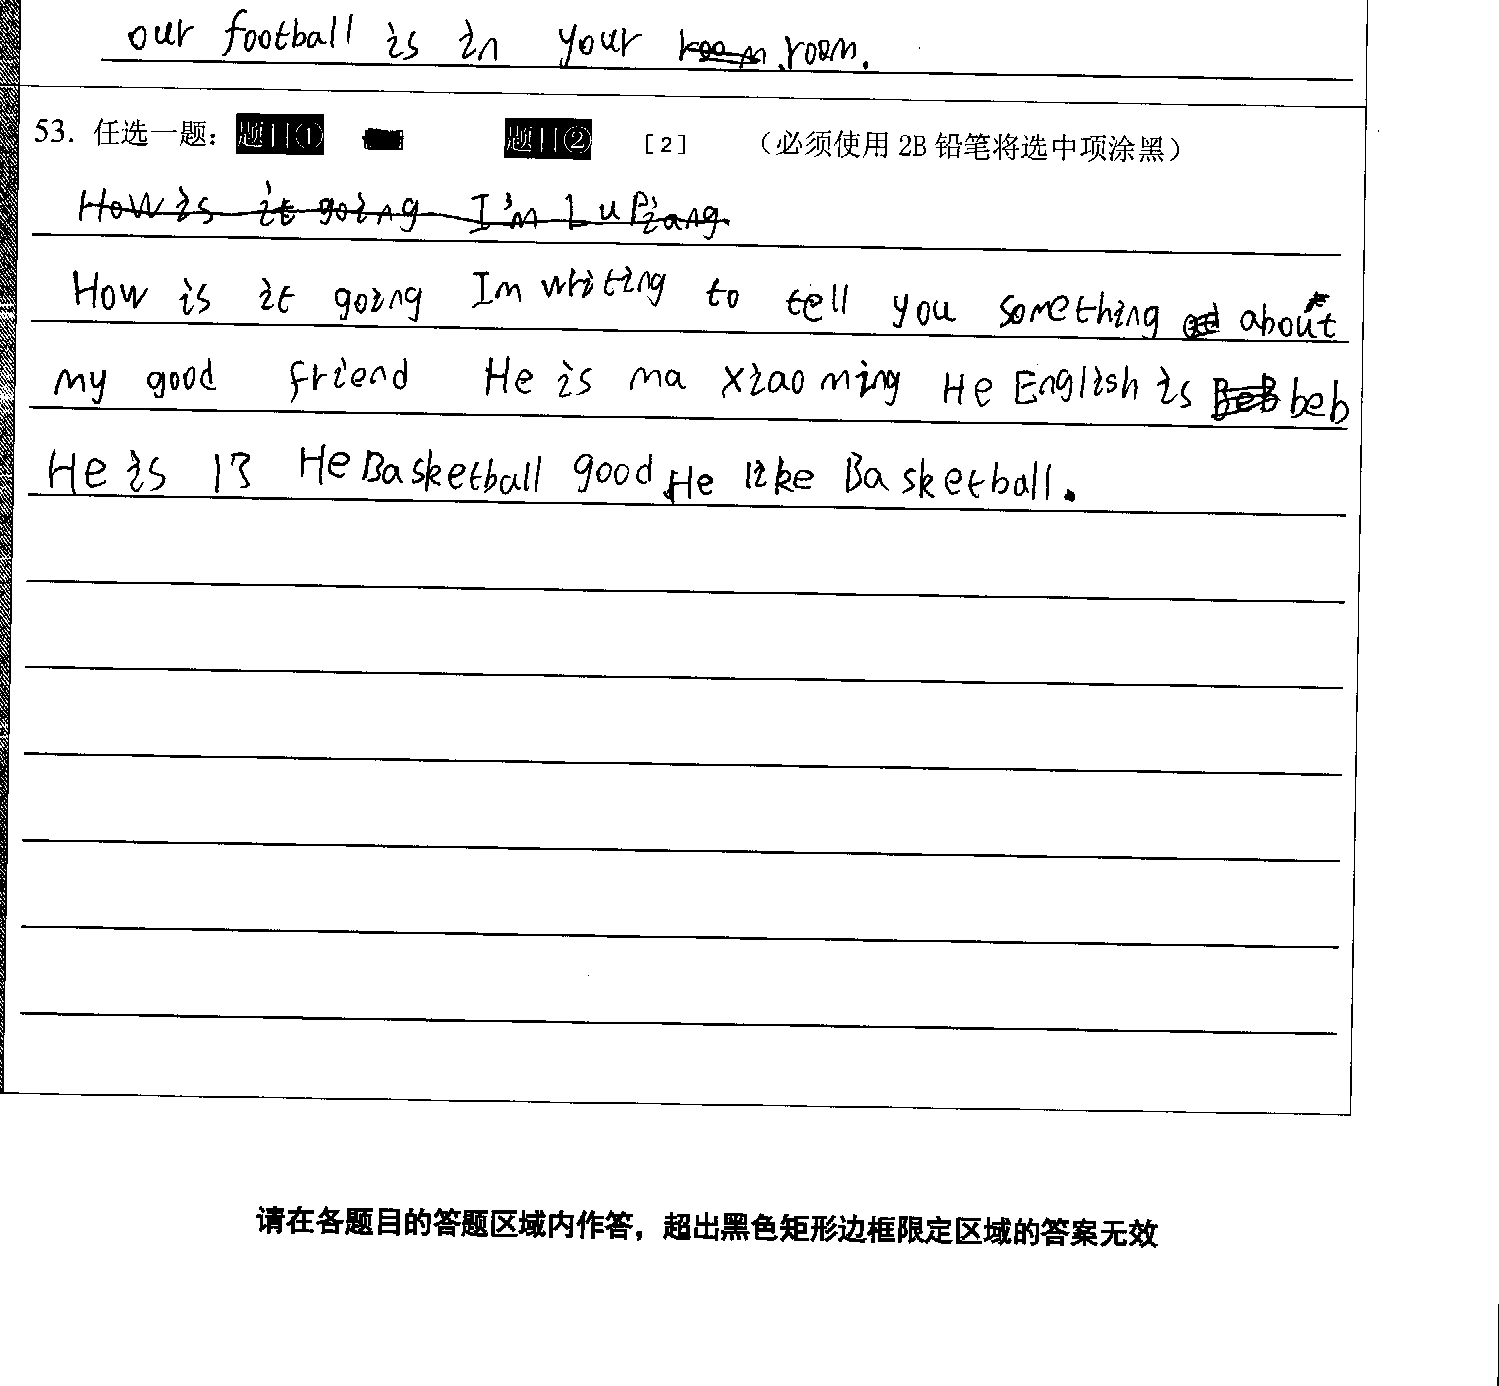 our football is in your room room.
53. 任选一题: 题目① 题目② [2] (必须使用 2B 铅笔将选中项涂黑)
How is it going I'm Lu Piang
How is it going Im writing to tell you something about
my good friend He is ma xiao ming He English is BeB beb
He is 13 He Basketball good, He like Basketball.
请在各题目的答题区域内作答，超出黑色矩形边框限定区域的答案无效